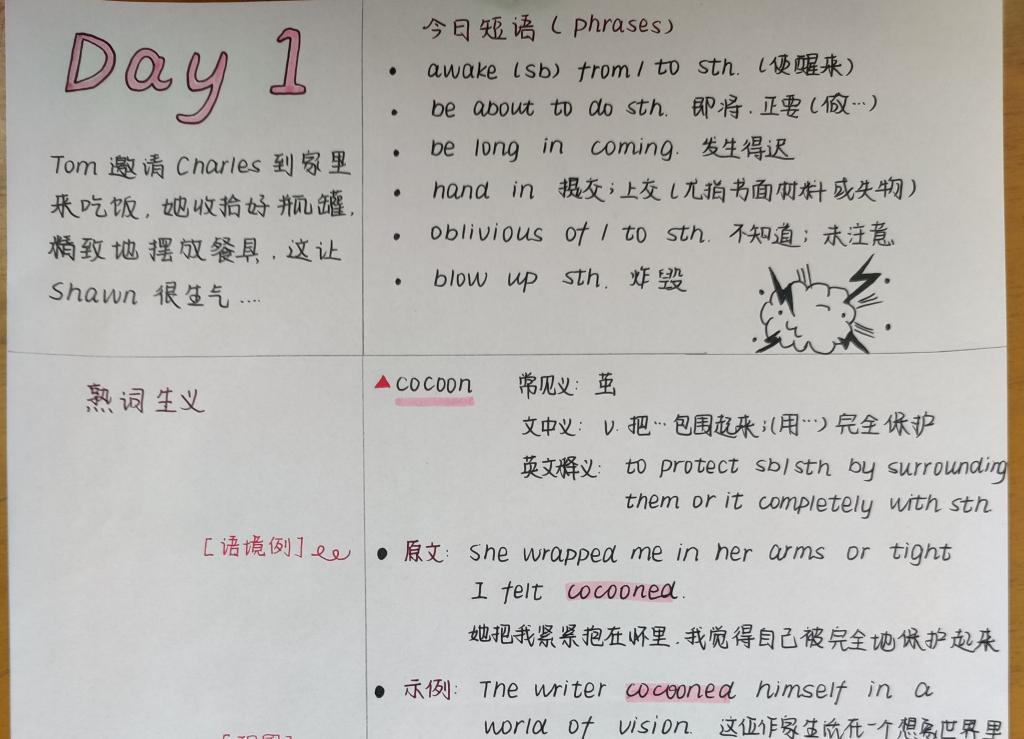 Day 1
Tom 邀请 Charles 到家里
来吃饭，她收拾好瓶罐，
精致地摆放餐具，这让
Shawn 很生气....
今日短语 ( phrases )
• awake (sb) from / to sth. (使醒来)
• be about to do sth. 即将.正要(做…)
• be long in coming. 发生得迟
• hand in 提交；上交 (尤指书面材料或失物)
• oblivious of / to sth. 不知道；未注意
• blow up sth. 炸毁
熟词生义
▲cocoon 常见义: 茧
文中义: v. 把…包围起来;(用…) 完全保护
英文释义: to protect sb/sth by surrounding
them or it completely with sth
[语境例]
• 原文: She wrapped me in her arms or tight
I felt cocooned.
她把我紧紧抱在怀里.我觉得自己被完全地保护起来
• 示例: The writer cocooned himself in a
world of vision. 这位作家生活在一个想象世界里